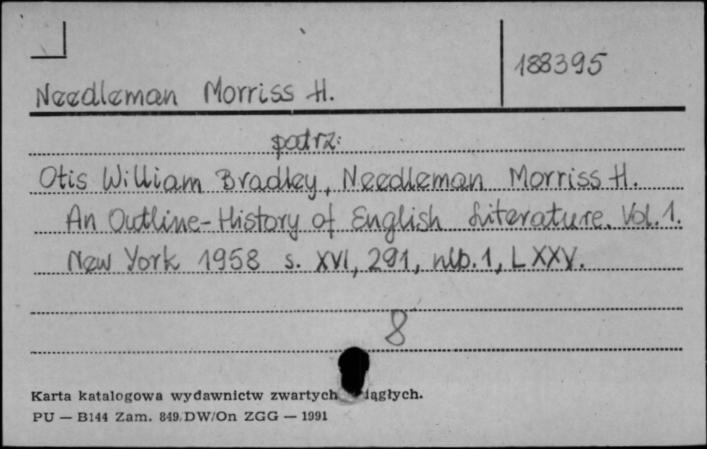 188395
Needleman Morriss H.
patrz:
Otis William Bradley, Needleman Morriss H.
An Outline-History of English Literature. Vol. 1.
New York 1958 s. XVI, 291, nlb. 1, LXXV.
8
Karta katalogowa wydawnictw zwartych iągłych.
PU — B144 Zam. 849. DW/On ZGG — 1991